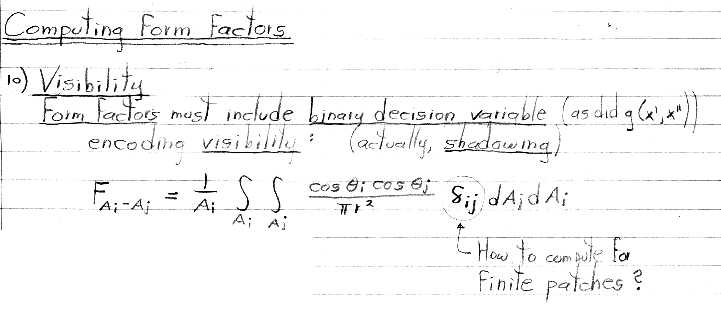 Computing Form Factors
10) Visibility
Form Factors must include binary decision variable (as did g(x',x"))
encoding visibility: (actually, shadowing)
F_{Ai-Aj} = 1/Ai ∫_{Ai} ∫_{Aj} cos θi cos θj / πr² δij dAj dAi
How to compute for
finite patches?